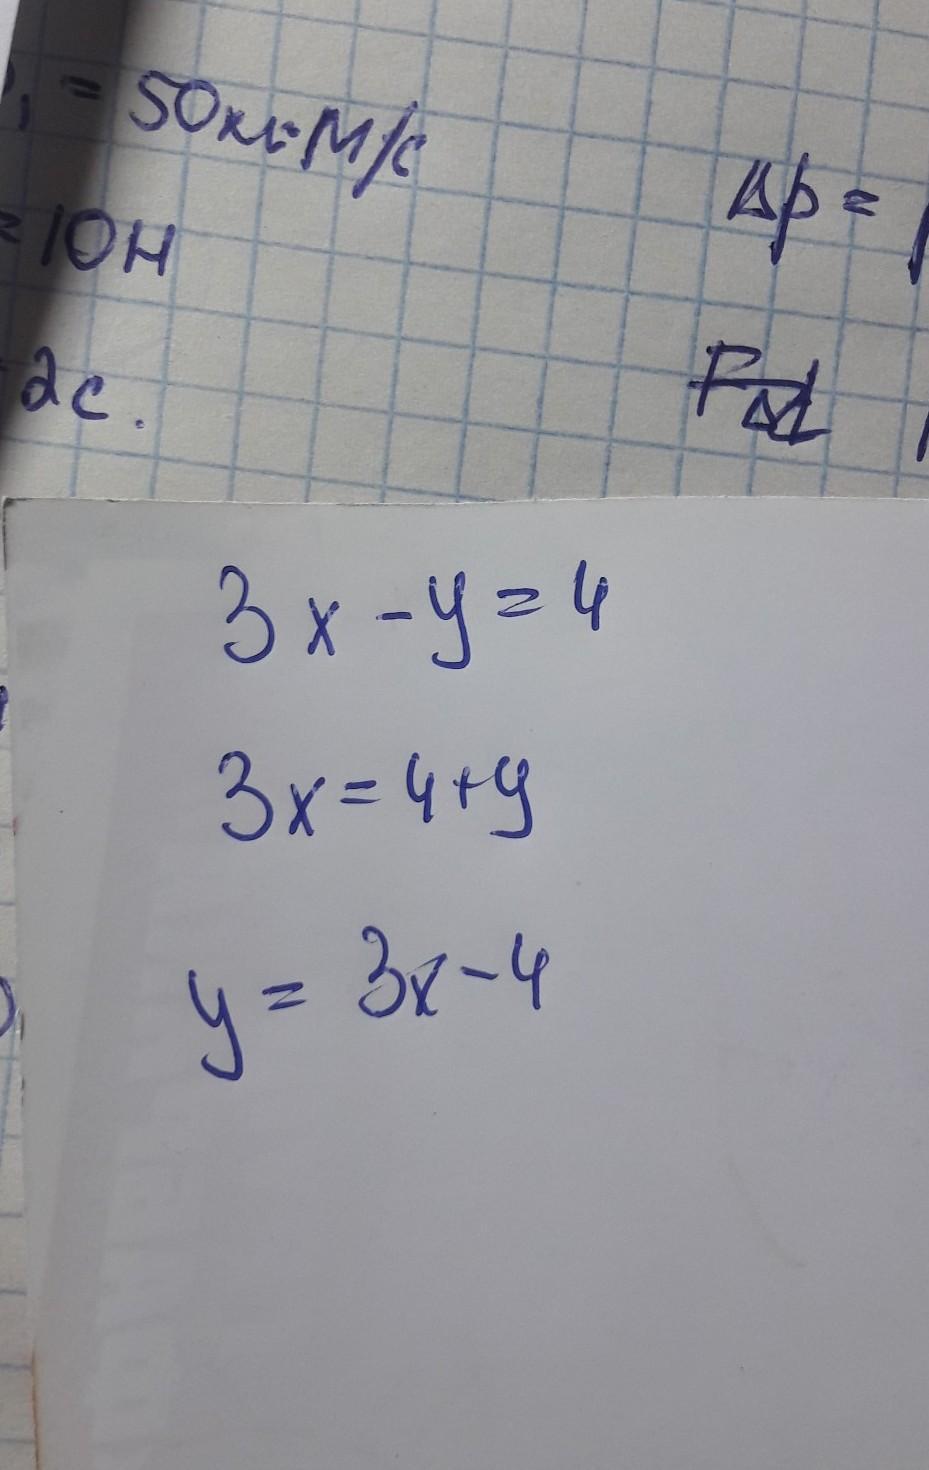 = 50кг·м/с
Δp =
= 10Н
2с.
3x - y = 4
3x = 4 + y
y = 3x - 4